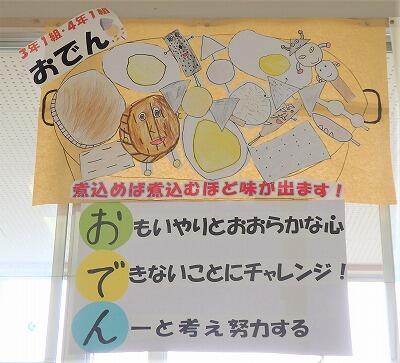 3年1組・4年1組
おでん
煮込めば煮込むほど味が出ます！
おもいやりとおおらかな心
できないことにチャレンジ！
んーと考え努力する